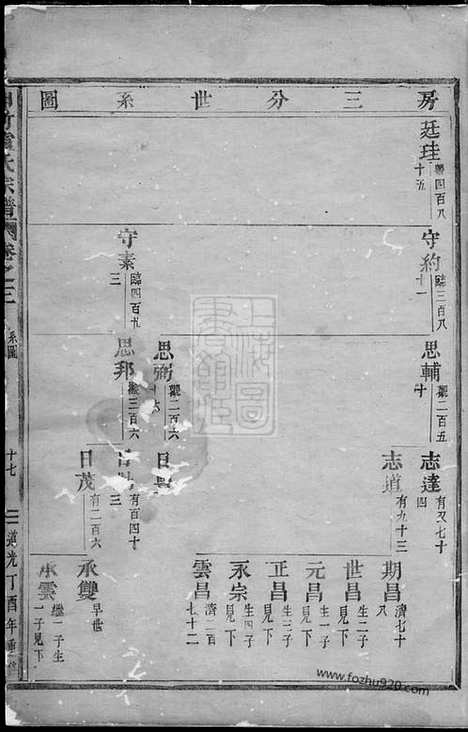 房三分世系圖
廷珪 興四百八十五
守約 臨三百八十一
守素 臨四百九三
思輔 觀二百五十
思弼 觀二百六十六
思邦 觀三百六
志達 有又七十四
志道 有九十三
日
日
日茂 有二百六
期昌 濟七十八
世昌 生二子見下
元昌 生一子見下
正昌 生三子見下
永宗 生四子見下
雲昌 濟二百七十二
承雙 早世
承雲 繼一子生一子見下
氏宗譜
卷之三
系圖
十七
道光丁酉年重修
上海圖書館藏
https://www.fozhu920.com